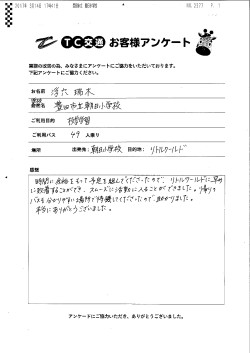 TC交通 お客様アンケート
業務の改善の為、みなさまにアンケートにご協力をいただいております。
下記アンケートにご協力ください。
お名前
豊田市立朝日小学校
ご利用目的 校外学習
ご利用バス 49 人乗り
出発地：朝日小学校 目的地：リトルワールド
感想
時間に余裕をもって予定を組んでくださったので、リトルワールドに早めに到着することができ、スムーズに活動に入ることができました。帰りもバスを分かりやすい場所で待機してくださったので、助かりました。
本当にありがとうございました。
アンケートにご協力いただき、ありがとうございました。